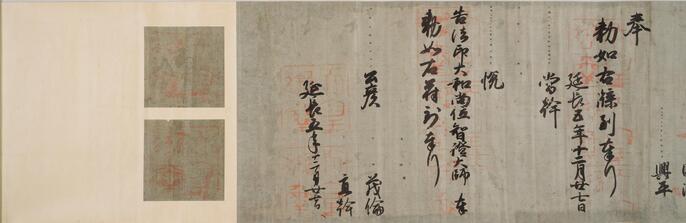 興平
奉
勅如右牒到奉行
延長五年十二月廿七日
當幹
悦
告法印大和尚位智證大師奉
勅如右符到奉行
茂倫
直幹
延長五年十二月廿七日